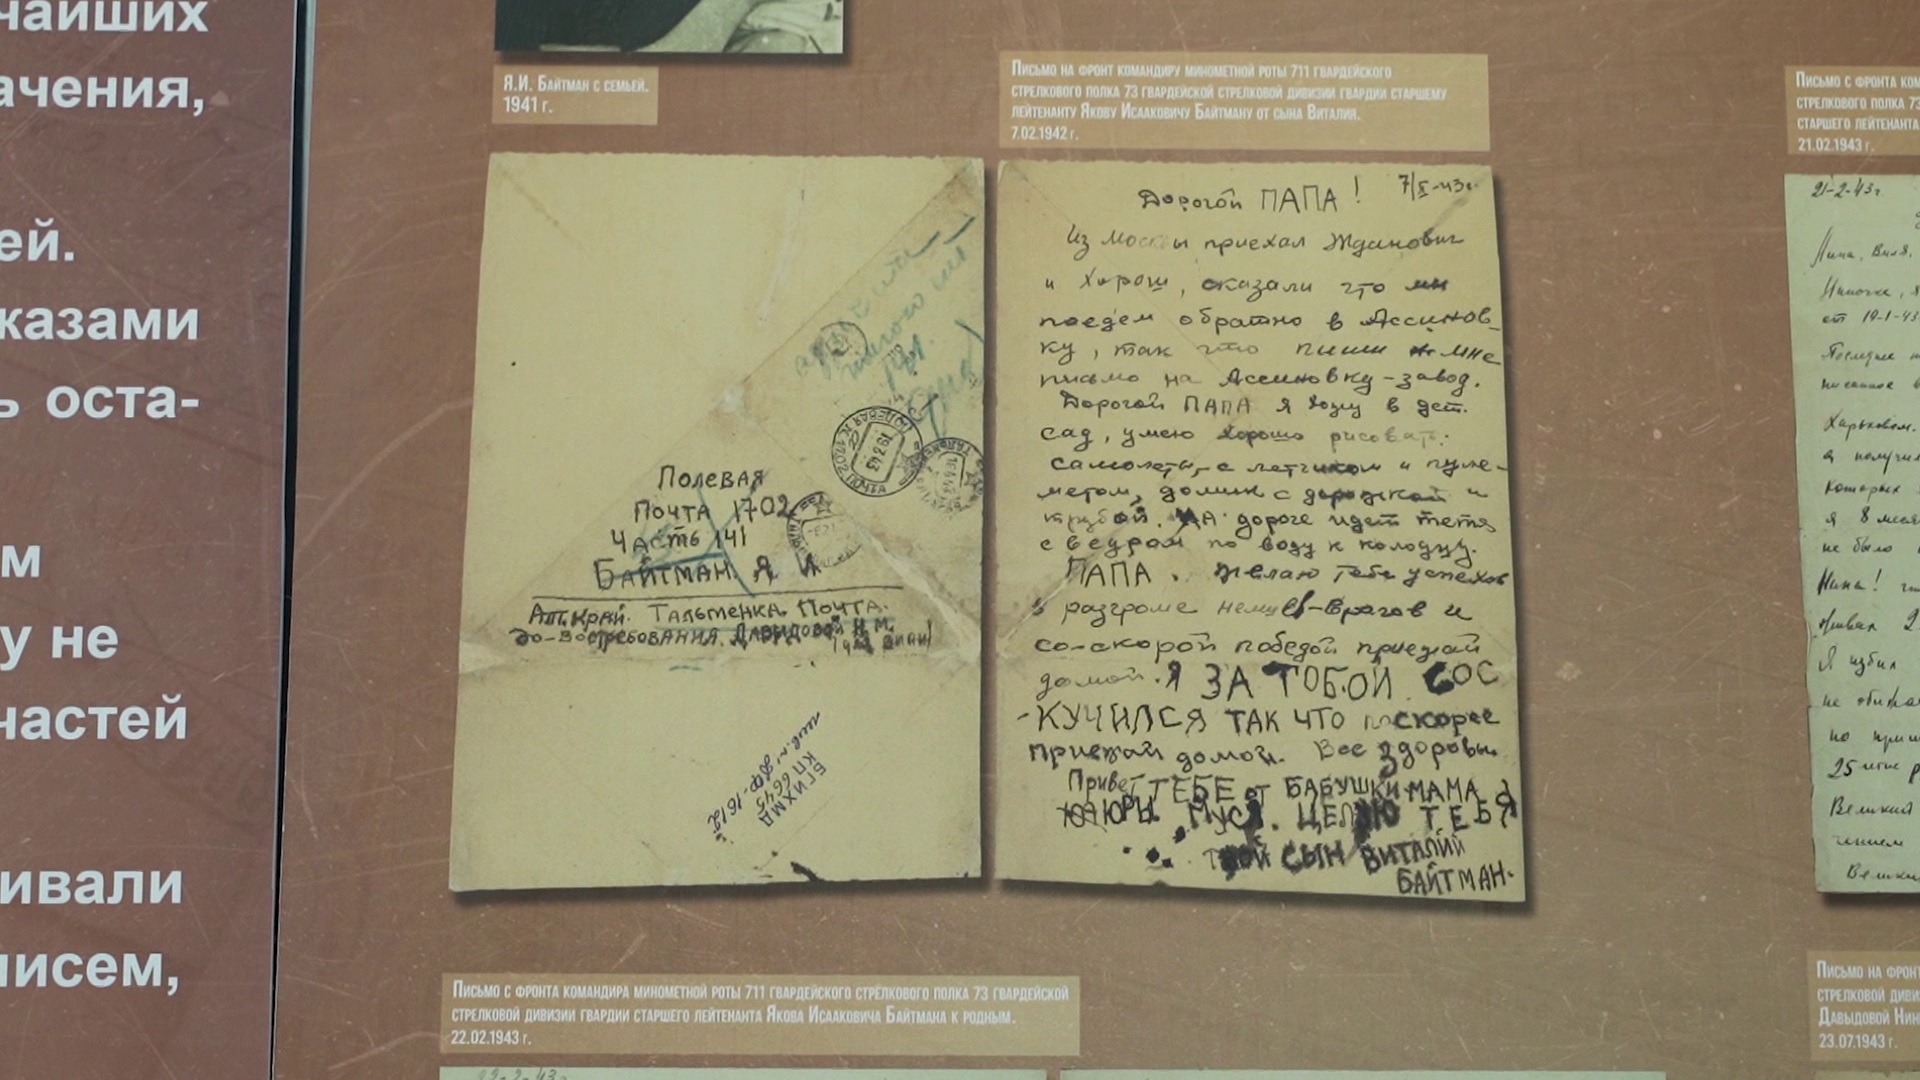 чайших
ачения,
ей.
казами
ь оста-
м
у не
частей
ивали
писем,
Я.И. Байтман с семьей.
1941 г.
Письмо на фронт командиру минометной роты 711 гвардейского
стрелкового полка 73 гвардейской стрелковой дивизии гвардии старшему
лейтенанту Якову Исааковичу Байтману от сына Виталия.
7.02.1942 г.
Полевая
Почта 1702
Часть 141
Байтман Я И
Алт.Край. Тальменка. Почта.
до-востребования. Давидовой Н.М.
БГИХМД
КП 6645
Дорогой ПАПА!
Из Москвы приехал Жданович
и Хорош, сказали что мы
поедем обратно в Ассинов-
ку, так что пиши мне
письмо на Ассиновку-завод.
Дорогой ПАПА я хожу в дет.
сад, умею хорошо рисовать.
самолеты, с летчиком и пуле-
метом, домик с дорожкой и
трубой. НА дороге идет тетя
с ведром по воду к колодцу.
ПАПА. Желаю тебе успехов
в разгроме немцев-врагов и
со-скорой победой приезжай
домой. Я ЗА ТОБОЙ СОС
-КУЧИЛСЯ ТАК ЧТО поскорее
приезжай домой. Все здоровы.
Привет ТЕБЕ от БАБУШКИ МАМА
ЮРЫ МУСЯ. ЦЕЛУЮ ТЕБЯ
ТВОЙ СЫН ВИТАЛИЙ
БАЙТМАН.
Письмо с фронта командира минометной роты 711 гвардейского стрелкового полка 73 гвардейской
стрелковой дивизии гвардии старшего лейтенанта Якова Исааковича Байтмана к родным.
22.02.1943 г.
22-2-43г
Письмо с фронта ком
стрелкового полка 73
старшего лейтенанта
21.02.1943 г.
21-2-43г
от 19-1-43
Харьковом.
я получил
которых
я 8 меся
не было
Нина!
Я
25
Великий
Письмо на фронт
стрелковой диви
Давыдовой Нин
23.07.1943 г.